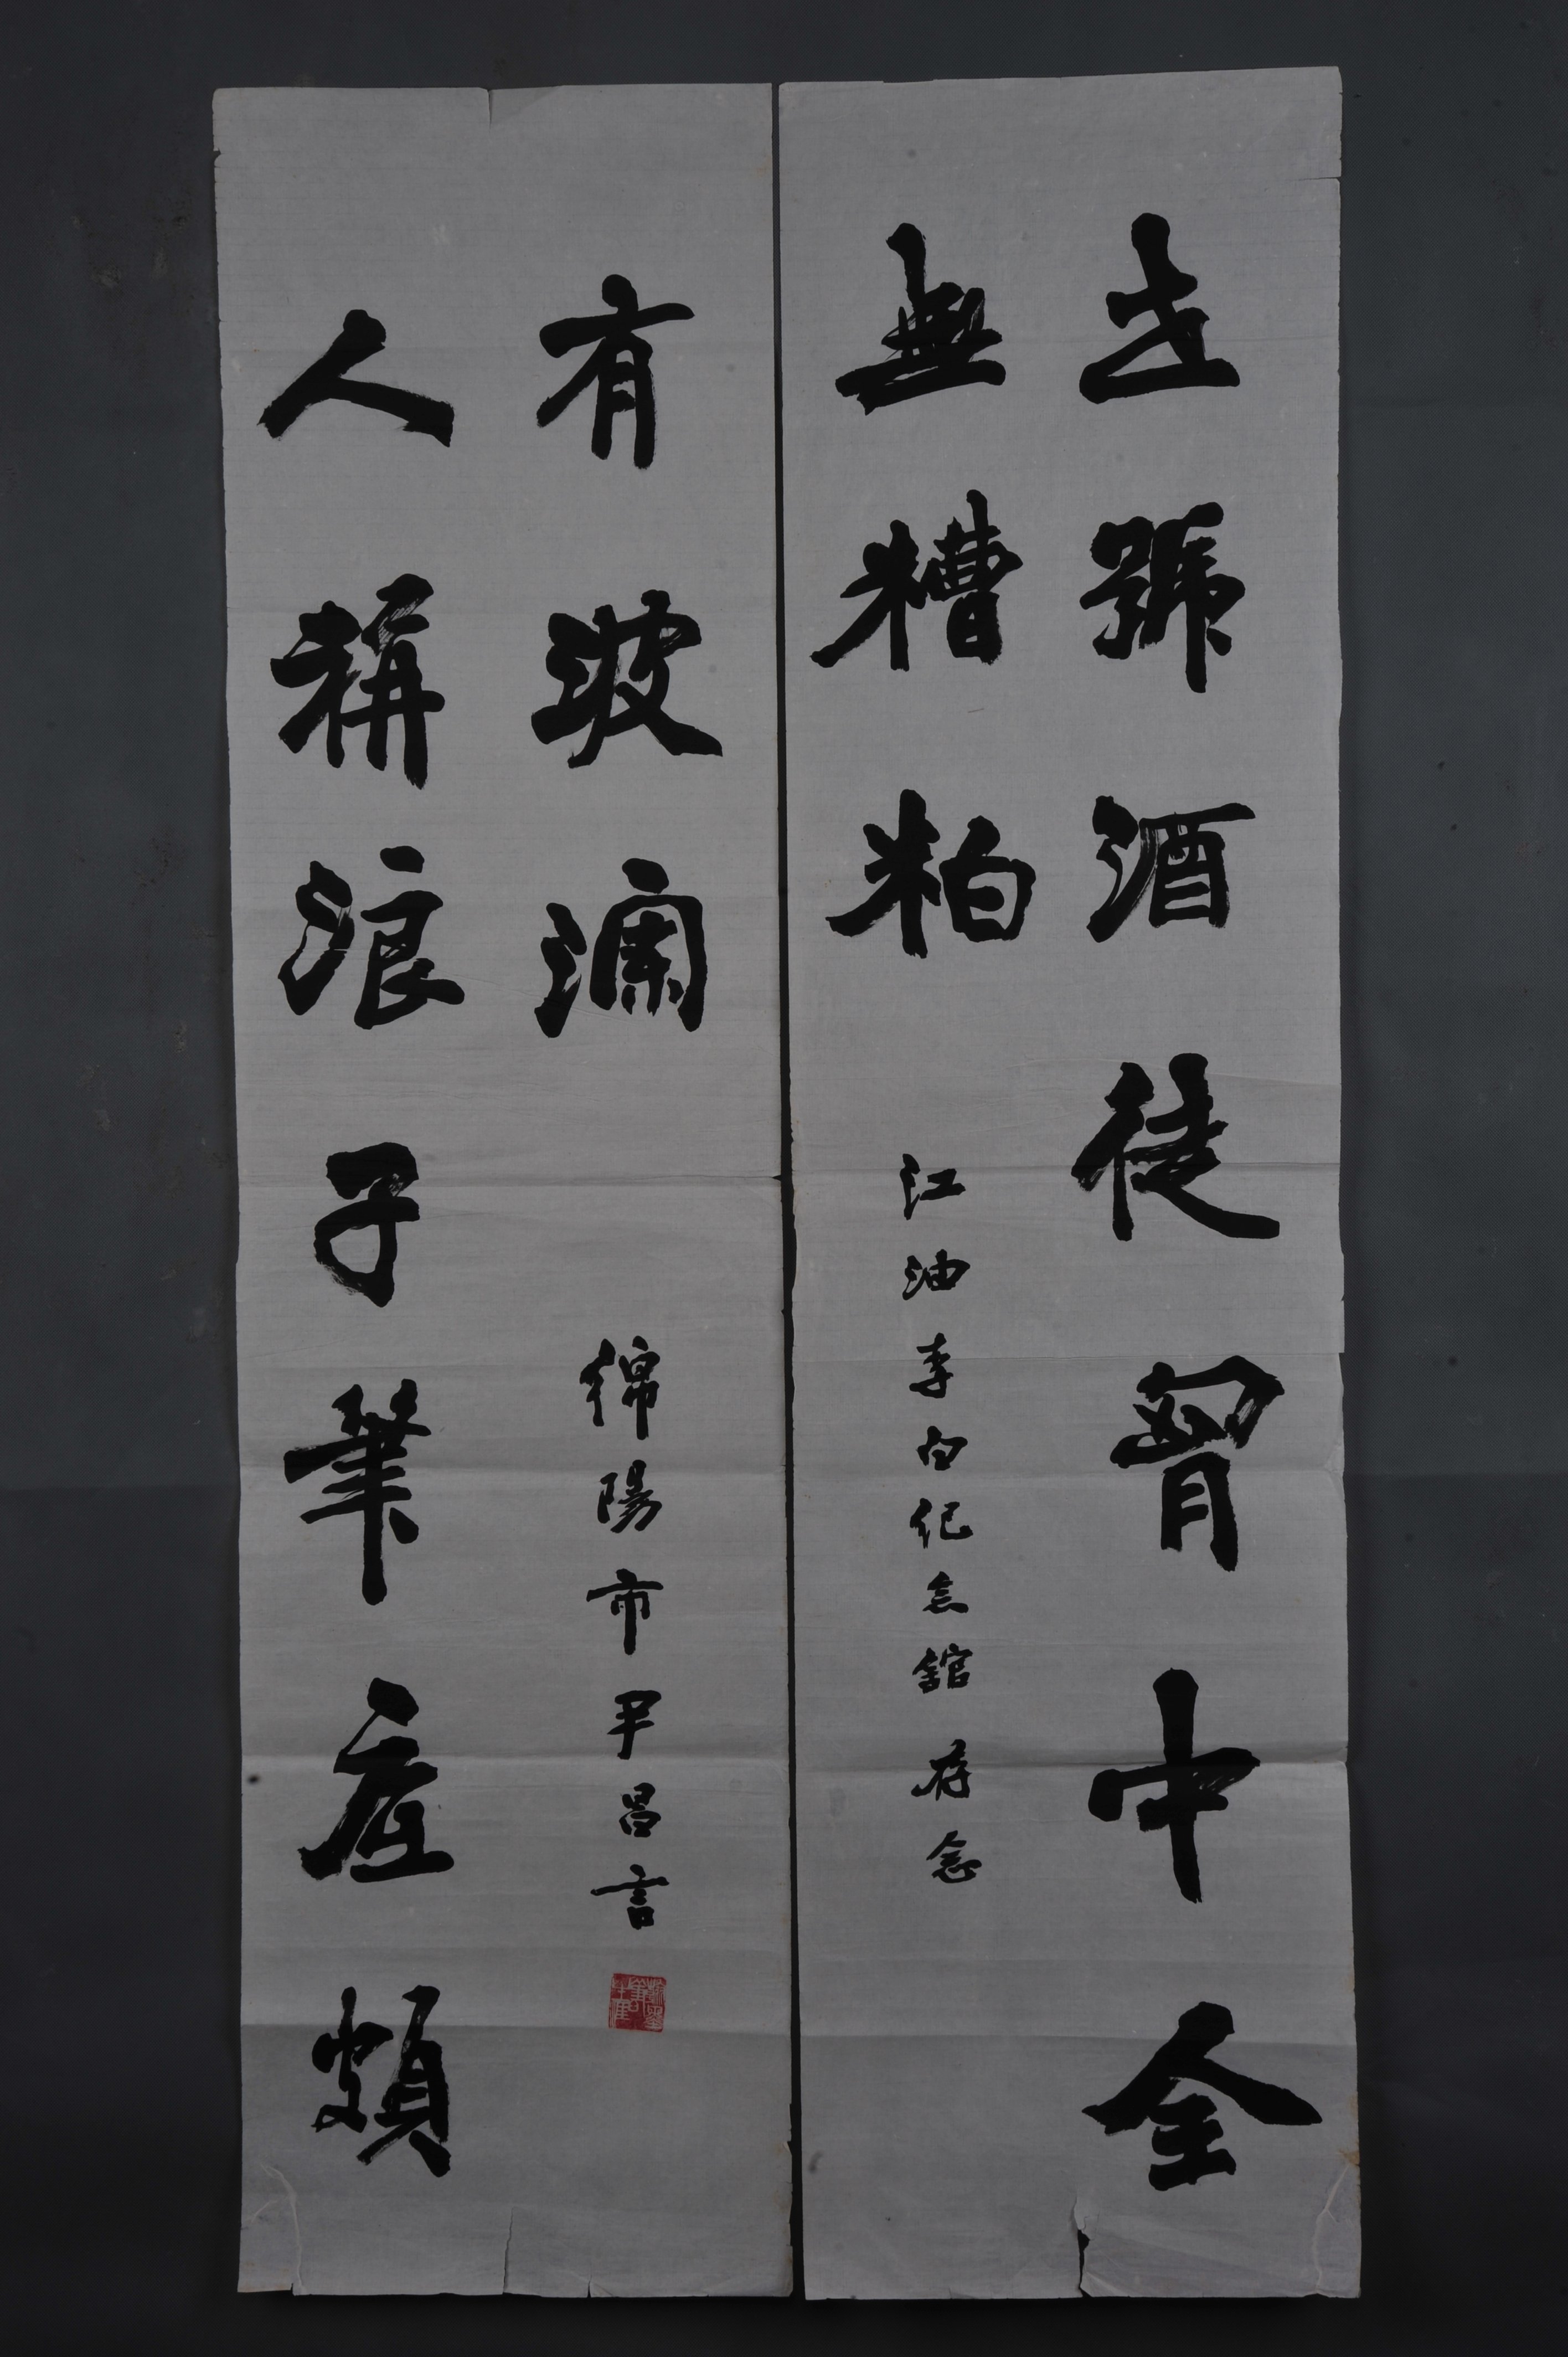 世號酒徒胷中全
無糟粕
江油李白紀念館 存念
人稱浪子筆底頗
有波瀾
綿陽市尹昌言